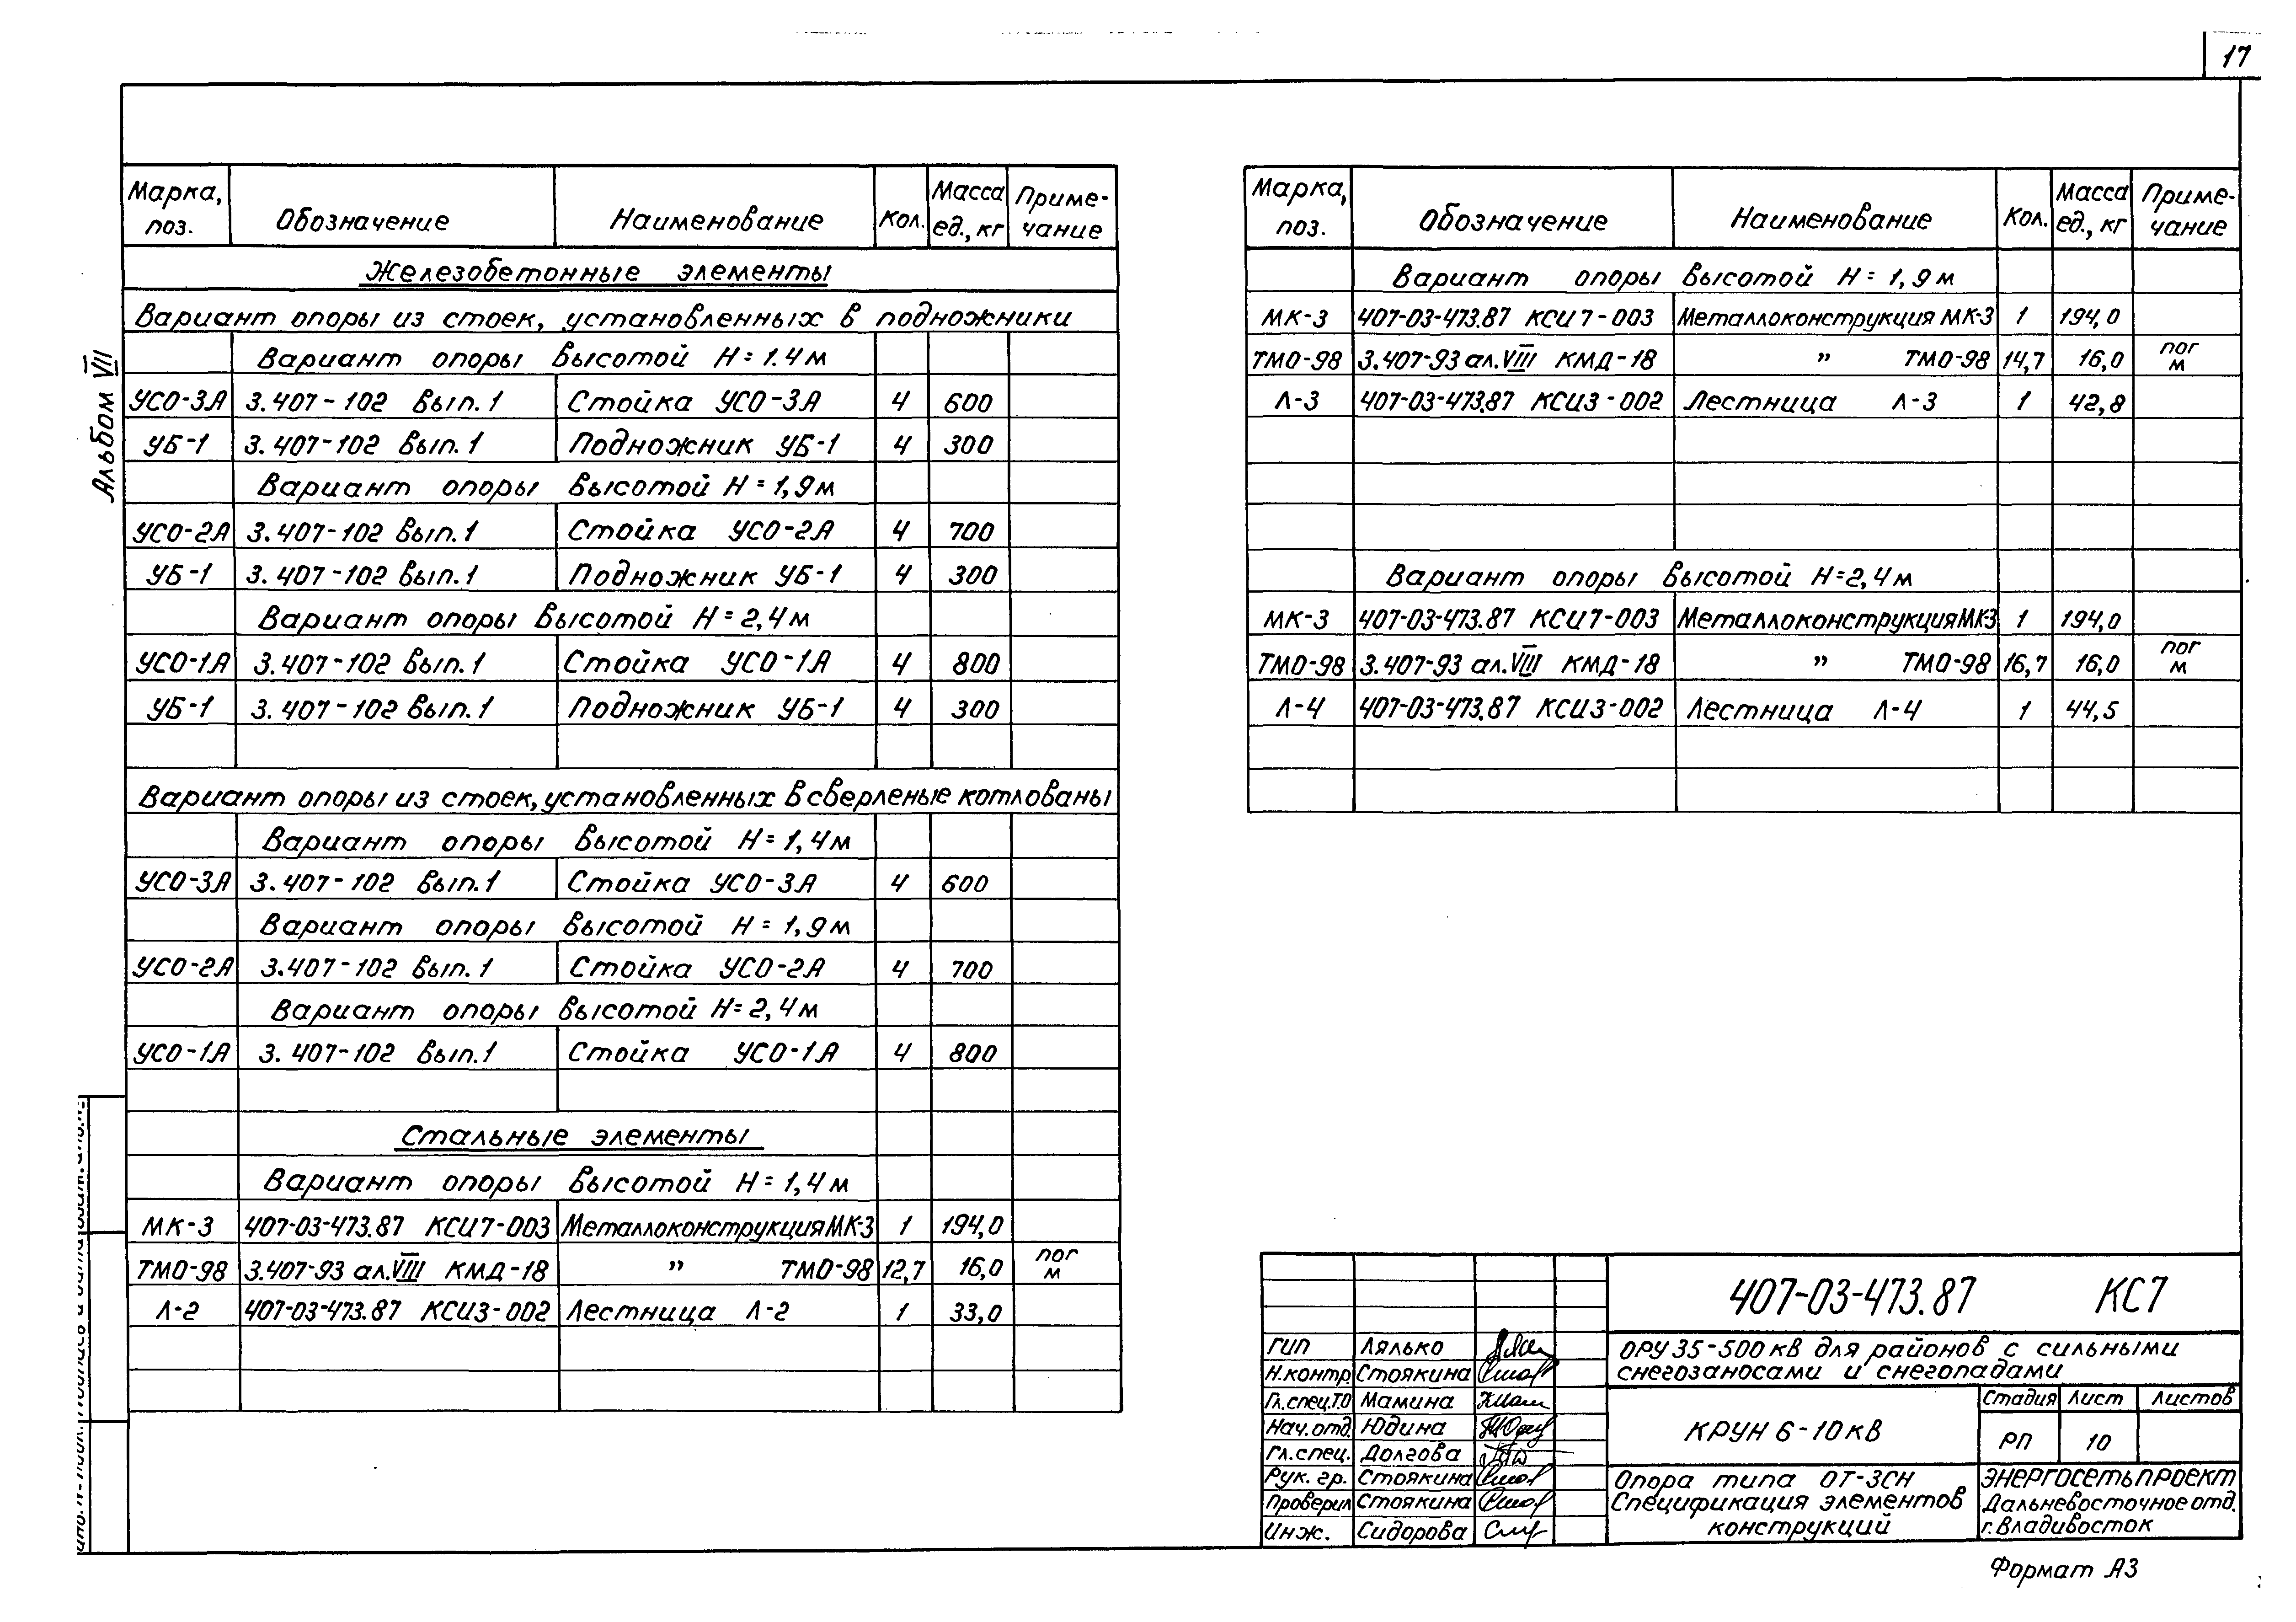 17
Альбом VII
Марка, поз. Обозначение Наименование Кол. Масса ед., кг Приме-чание
Железобетонные элементы
Вариант опоры из стоек, установленных в подножники
Вариант опоры высотой Н=1.4м
УСО-3А 3.407-102 Вып.1 Стойка УСО-3А 4 600
УБ-1 3.407-102 Вып.1 Подножник УБ-1 4 300
Вариант опоры высотой Н=1,9м
УСО-2А 3.407-102 Вып.1 Стойка УСО-2А 4 700
УБ-1 3.407-102 Вып.1 Подножник УБ-1 4 300
Вариант опоры высотой Н=2,4м
УСО-1А 3.407-102 Вып.1 Стойка УСО-1А 4 800
УБ-1 3.407-102 Вып.1 Подножник УБ-1 4 300
Вариант опоры из стоек, установленных в сверленые котлованы
Вариант опоры высотой Н=1,4м
УСО-3А 3.407-102 Вып.1 Стойка УСО-3А 4 600
Вариант опоры высотой Н=1,9м
УСО-2А 3.407-102 Вып.1 Стойка УСО-2А 4 700
Вариант опоры высотой Н=2,4м
УСО-1А 3.407-102 Вып.1 Стойка УСО-1А 4 800
Стальные элементы
Вариант опоры высотой Н=1,4м
МК-3 407-03-473.87 КСИ7-003 Металлоконструкция МК-3 1 194,0
ТМО-98 3.407-93 ал.VIII КМД-18 " ТМО-98 12,7 16,0 пог м
Л-2 407-03-473.87 КСИ3-002 Лестница Л-2 1 33,0
Марка, поз. Обозначение Наименование Кол. Масса ед., кг Приме-чание
Вариант опоры высотой Н=1,9м
МК-3 407-03-473.87 КСИ7-003 Металлоконструкция МК-3 1 194,0
ТМО-98 3.407-93 ал.VIII КМД-18 " ТМО-98 14,7 16,0 пог м
Л-3 407-03-473.87 КСИ3-002 Лестница Л-3 1 42,8
Вариант опоры высотой Н=2,4м
МК-3 407-03-473.87 КСИ7-003 Металлоконструкция МК-3 1 194,0
ТМО-98 3.407-93 ал.VIII КМД-18 " ТМО-98 16,7 16,0 пог м
Л-4 407-03-473.87 КСИ3-002 Лестница Л-4 1 44,5
407-03-473.87 КС7
ГИП Лялько
Н.контр. Стоякина
Гл.спец.ТО Мамина
Нач.отд. Юдина
Гл.спец. Долгова
Рук. гр. Стоякина
Проверил Стоякина
Инж. Сидорова
ОРУ 35-500 кВ для районов с сильными
снегозаносами и снегопадами
КРУН 6-10 кВ
Стадия Лист Листов
РП 10
Опора типа ОТ-3СН
Спецификация элементов
конструкций
ЭНЕРГОСЕТЬПРОЕКТ
Дальневосточное отд.
г.Владивосток
Формат А3